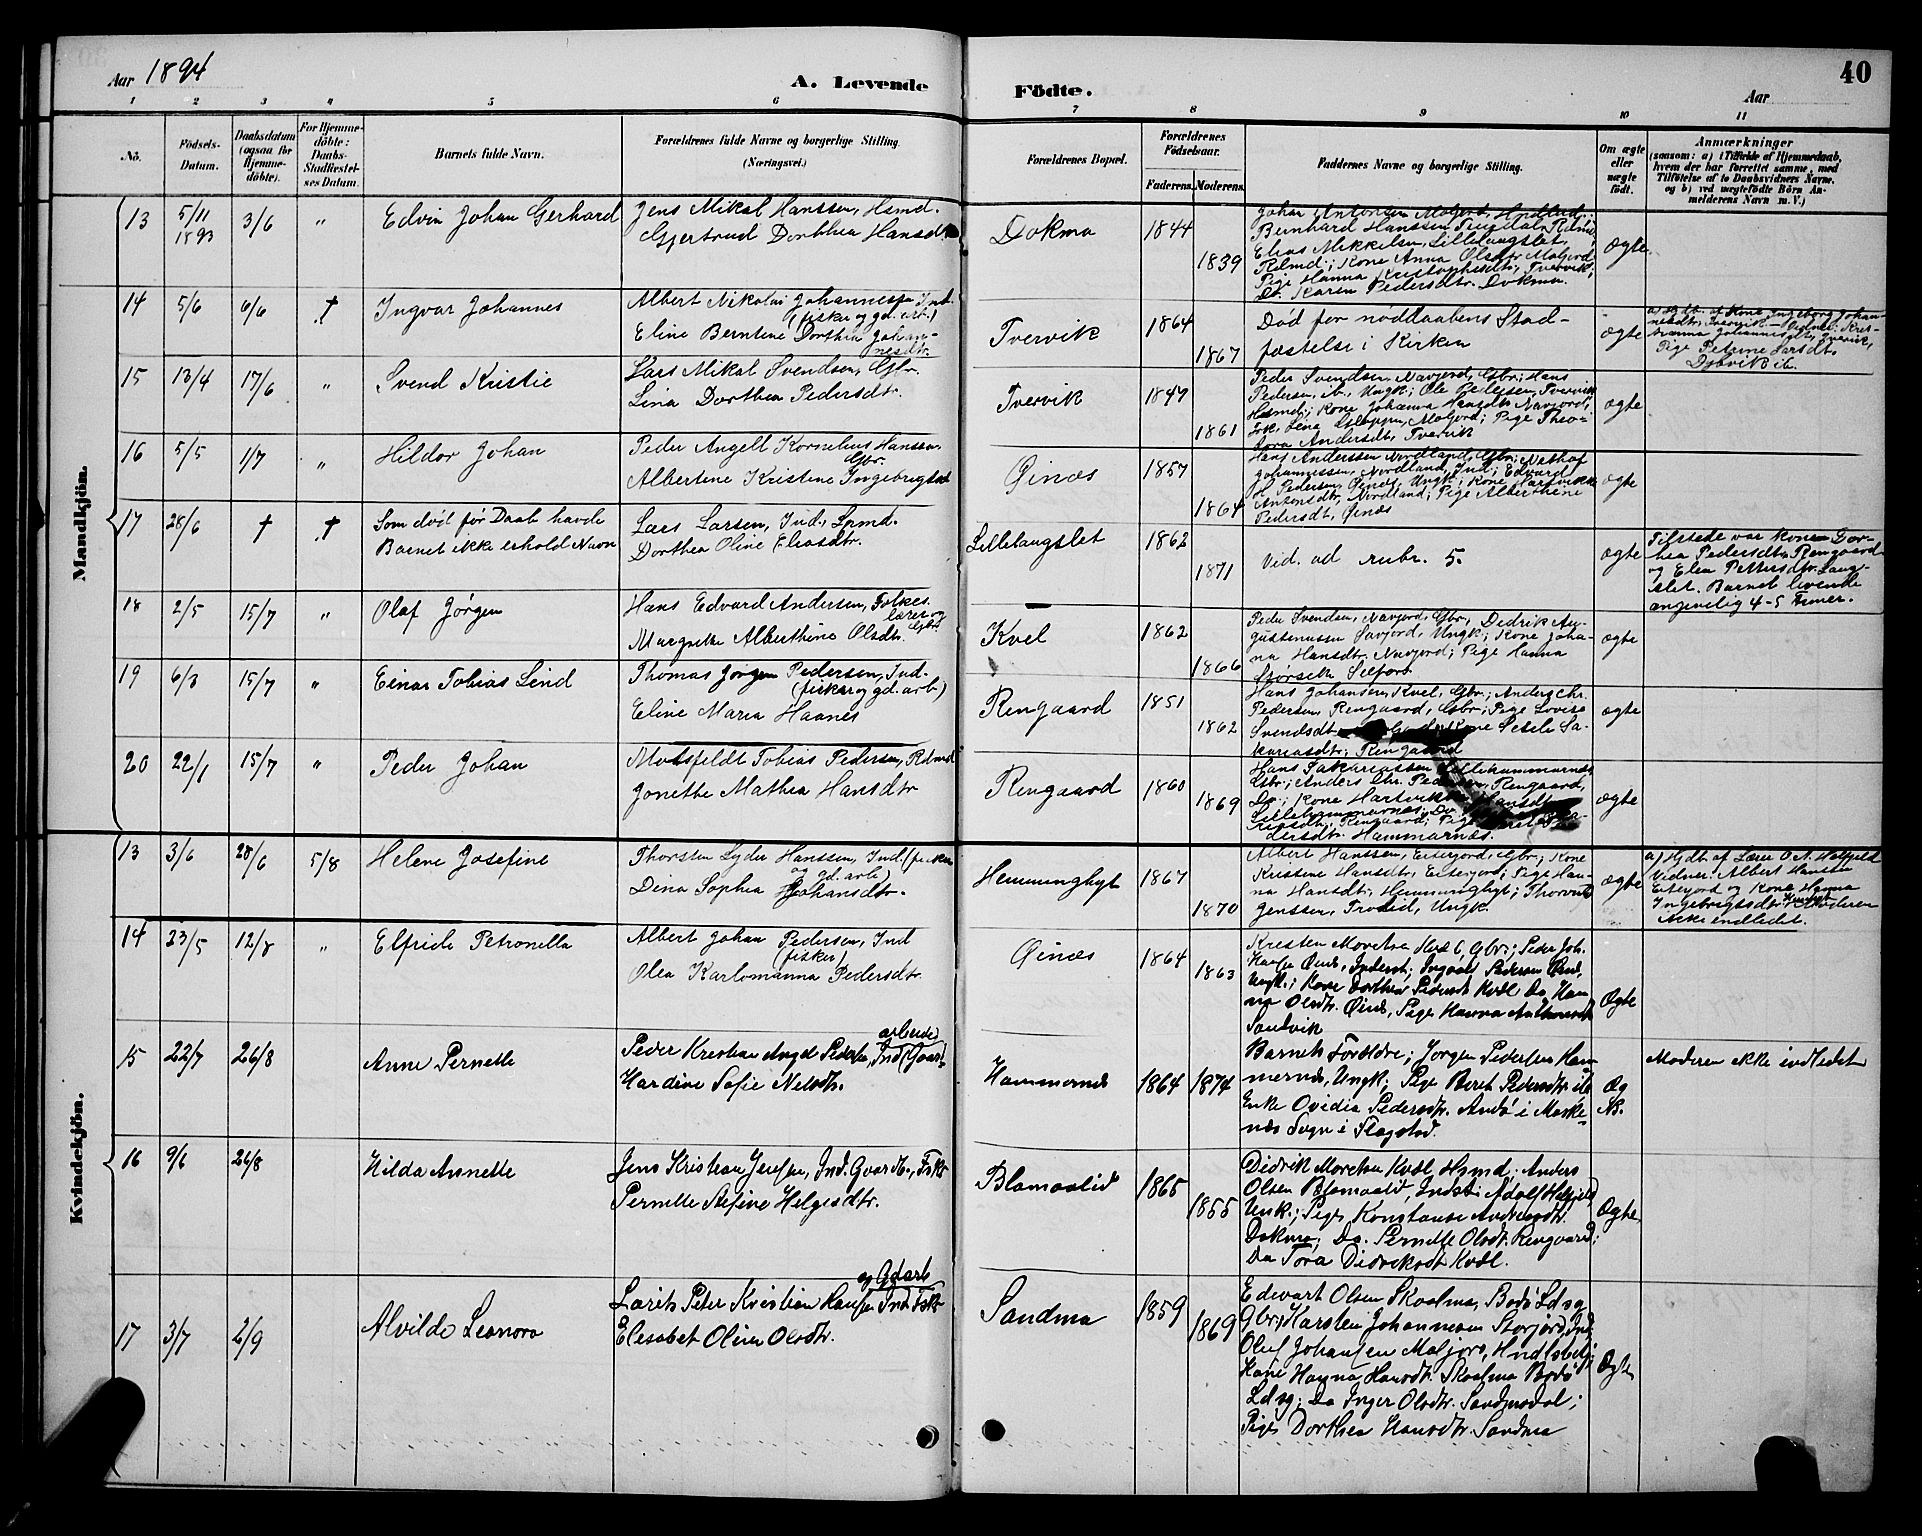 Aar 1894
A. Levende
Födte.
Aar
40
1 2 3 4 5 6 7 8 9 10 11
No.
Födsels-Datum.
Daabsdatum (ogsaa for Hjemmedöbte).
For Hjemmedöbte: Daabs-Stadfæstelses Datum.
Barnets fulde Navn.
Forældrenes fulde Navne og borgerlige Stilling (Næringsvei.)
Forældrenes Bopæl.
Forældrenes Födselsaar.
Faderens. Moderens.
Faddernes Navne og borgerlige Stilling.
Om ægte eller uægte födt.
Anmærkninger
(saasom: a) i Tilfælde af Hjemmedaab, hvem der har forrettet samme, med Tilföielse af to Daabsvidners Navne, og b) ved uægtefödte Börn Anmelderens Navn m. V.)
Mandkjön.
13 5/11 1893 3/6 " Edvin Johan Gerhard
Jens Mikal Hanssen, Hsmd.
Gjertrud Dorthea Hansdt.
Dokmo 1844 1839
Bernhard Hanssen
Elias Mikkelsen, Lillelangslet,
Rdmd.; Kone Anna Olsdtr. Moljord
Pige Hanna Tverrvik;
Do. Karen Pedersdtr. Dokmo.
Ægte
14 5/6 6/6 † Ingvar Johannes
Albert Nikolai Johannessen Ind.
(fisker og gd. arb.)
Eline Berntine Dorthea Johannesdtr.
Tvervik 1864 1867
Død før nøddaabens Stadfæstelse i Kirken
ægte
Pige Petrine Larsdtr.
Djupvik ib.
15 13/4 17/6 " Svend Kristie
Lars Mikal Svendsen, Gbr.
Lina Dorthea Pedersdtr.
Tvervik 1847 1861
Peder Svendsen, Navjord, Gbr; Hans
Pedersen, ib., Ungk; Ole Pedersen, Tvervik
Hsmd; Kone Johanna Hansdtr Navjord;
Moljord; Pige Theodora Andersdt, Tvervik
ægte
16 5/5 1/7 " Hildor Johan
Peder Angell Kornelius Hanssen
Gbr.
Albertine Kristine Ingebrigtsdt
Øinæs 1857 1864
Hans Anderssen Nordland, Gbr;
Johannessen, Nordland, Ind; Edvard
H. Pedersen, Øines, Ungk; Kone Hartvikka
Antonsdtr, Nordland; Pige Alberthine
Pedersdt, Øinæs
ægte
17 28/6 † † Som død før Daab havde
Barnet ikke erhold Navn
Lars Larsen, Ind.
Dorthea Oline Eliasdtr.
Lillelangslet 1862 1871
Vid. ad rubr. 5.
ægte
Tilstede var konen Dorthea Pedersdtr. Rengaard
og Elea Pettersdtr. Langslet. Barnet levende
angivelig 4-5 Timer.
18 2/5 15/7 " Olaf Jørgen
Hans Edvard Andersen, Folkes.
lærer og Gbr.
Margrethe Alberthine Olsdtr.
Kvel 1862 1866
Peder Svendsen, Navjord, Gbr, Didrik Augustinussen Savjord, Ungk; Kone Johana Hansdtr. Navjord; Pige Hanna
Størseth Selfors
ægte
19 6/3 15/7 " Einar Tobias Lind
Thomas Jørgen Pedersen, Ind.
(fisker og gd. arb)
Eline Maria Haanes
Rengaard 1851 1862
Hans Johansen, Kvel, Gbr.; Anders Chr.
Pedersen, Rengaard, Gbr; Pige Lovise
Svendsdt. Kone Sesele Sakariasdtr; Rengaard
ægte
20 22/1 15/7 " Peder Johan
Motsfeldt Tobias Pedersen, Rdmd
Jonette Mathea Hansdtr
Rengaard 1860 1869
Hans Sakariassen Lillehammarnes
Gbr; Anders Chr. Pedersen, Rengaard,
Do; Kone Hartvikka Hansdtr
Lillehammarnes; Do.
Rengaard; Pige
Hammarnæs.
ægte
Kvindekjön.
13 3/6 28/6 5/8 Helene Josefine
Thorsten Lyder Hanssen, Ind. (fisker
og gd. arb)
Dina Sophia Johansdtr.
Hemminghyt 1867 1870
Albert Hanssen, Eiterjord, Gbr.; Kone
Kristine Hansdtr, Eiterjord; Pige Hanna Hansdtr, Hemminghyt; Thorvald
Jenssen, Trolid, Ungk.
ægte
a) Hjdt. af Lærer O. A. Hølfjeld
Vidner: Albert Hanssen
Eiterjord og Kone Hanna
Ingebrigtsdtr Moderen
ikke indledet.
14 23/5 12/8 " Elfride Petronella
Albert Johan Pedersen, Ind
(fisker)
Olea Karlomanna Pedersdtr.
Øinæs 1864 1863
Kresten Mortsen Kvæl, Gbr.; Peder Joh.
Hansen Øines, Inderst; Ingvald Pedersen Øines,
Ungk.; Kone Dorthea Pedersdt Kvæl Do. Hanna Olsdtr. Øines, Pige Hanna
Sandvik
Ægte
15 22/7 26/8 Anne Pernette
Peder Kristian Angel Pedersen, Ind (Gaards-
arbeider)
Hardine Sofie Nelsdtr.
Hammernæs 1864 1874
Barnets Forældre; Jørgen Pedersen Hammernæs, Ungk; Pige Beret Pedersdtr. ib
Enke Ovidia Pedersdtr. Andö i Moskenæs Sogn i Flagstad.
Æg
Moderen ikke indledet
16 9/6 26/8 Hilda Annette
Jens Kristian Jensen, Ind. Gaardb., Fisk
Pernette Stefine Helgesdtr.
Blomaalid 1865 1855
Didrik Mortsen Kvæl Hsmd; Anders
Olsen Blomaalid, Indst; Adolf Hølfjeld
Unk.; Pige Konstanse Andreasdtr.
Dokmo; Do. Pernette Olsdt. Rengaard;
Do Tora Didriksdt Kvæl.
Ægte
17 3/7 2/9 Alvilde Leonora
Lorits Peter Kristian Hansen Ind. Fisk
og Gdarb
Elisabet Oline Olsdtr.
Sandmo 1859 1869
Edevart Olsen Skaalma, Bodö Ldsg
Gbr; Karsten Johannesen Storjord, Ind
Oluf Johansen Moljord, Hndlsbetj.
Kone Hanna Hansdt. Skaalma Bodö
Ldsg; Do Inger Olsdtr. Sandmodal;
Pige Dorthea Hansdtr. Sandmo
Ægte